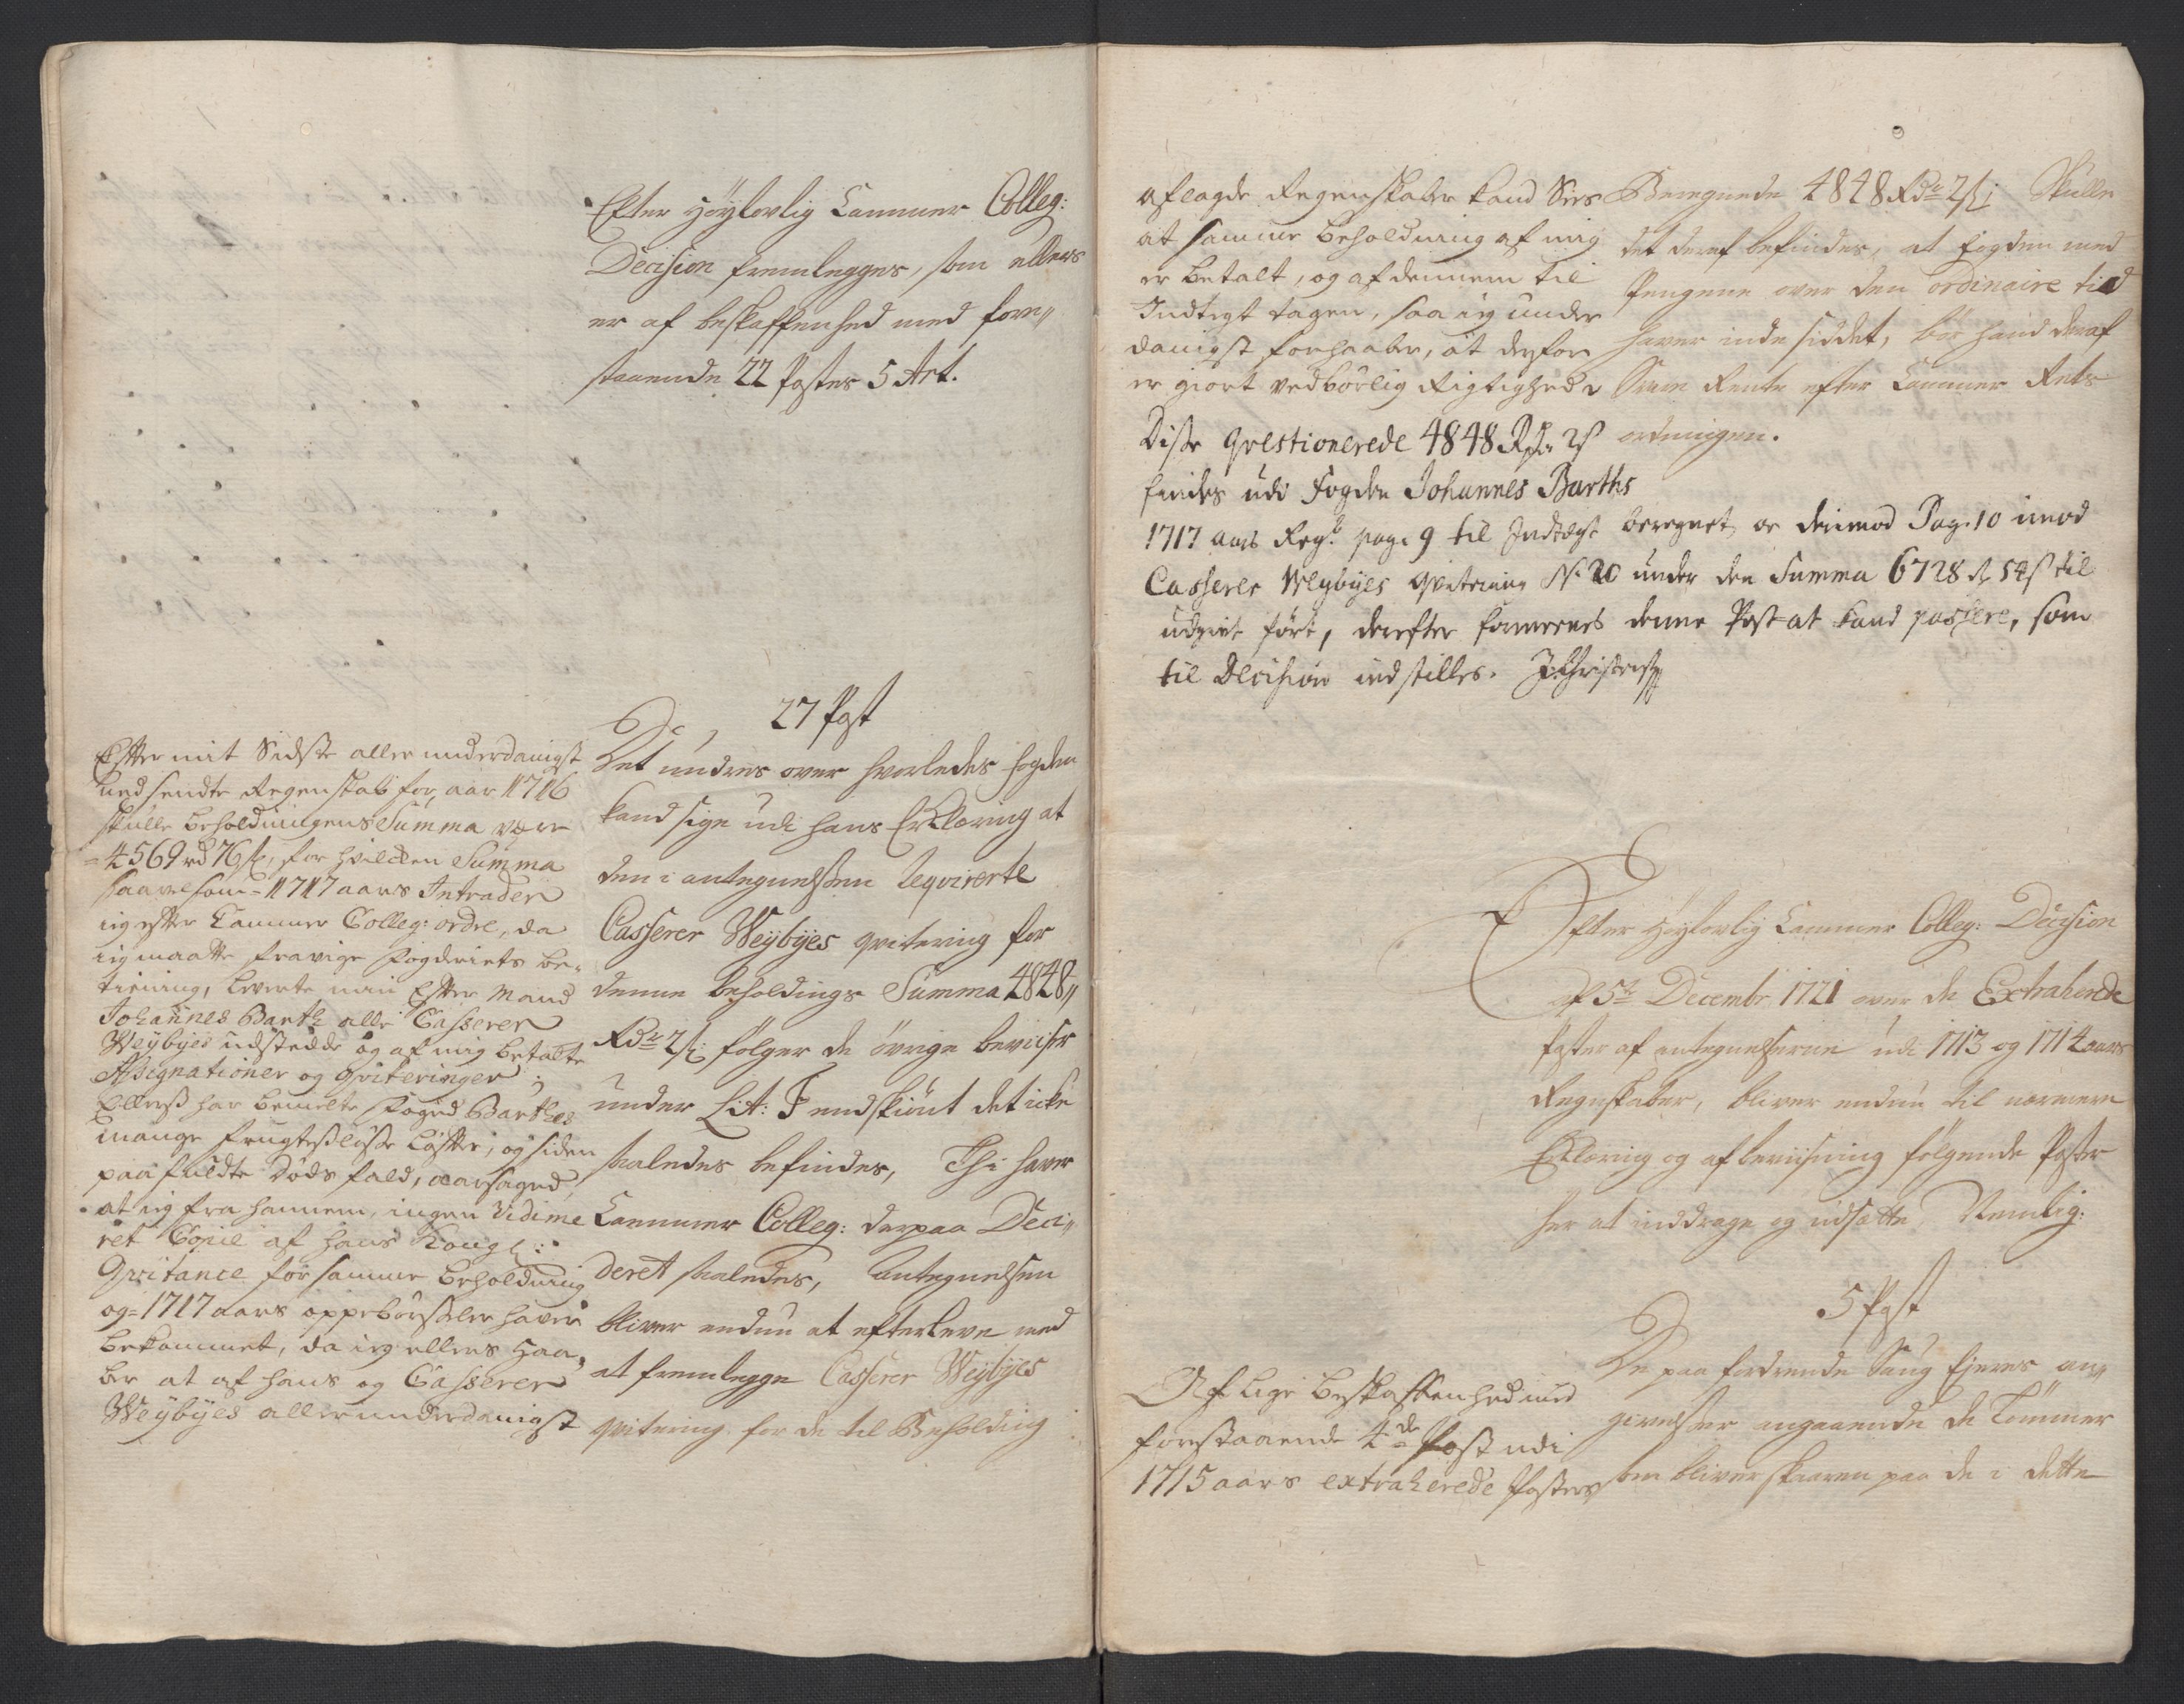 Efter Høylovlig Cammer Colleg:
Decision fremlegges, som ellers
er af beskaffenhed med fore„
staaende 22 Postes 5 Art.
27 Post
Det undres over hvorledes Fogden
kand sige udi hans Erklæring at
den i antegnelsen reqvirerte
Casserer Weybyes qvitering for
denne beholdings Summa 4848„
Rdr 2 s: følger de øvrige beviiser
under Lit: F endskiønt det icke
saaledes befindes, Thi haver
Cammer Colleg: derpaa Deci„
deret saaledes, Antegnelsen
bliver endnu at efterleve med
at fremlegge Casserer Weybyes
qvitering for de til Beholding
Effter mit Sidste aller underdanigst
nedsendte Regenskab for aar 1716
skulle beholdningens Summa være
= 4569 rd 76 s, for hvilcken Summa
saavelsom = 1717 aars Intrader
ieg effter Cammer Colleg: ordre, da
ieg maatte fravige Fogderiets be„
tiening, leverte min Effter Mand
Johannes Barth alle Casserer
Weybyes udstedde og af mig betalte
Assignationer og Qviteringer;
Ellerss har bemelte Foged Barthes
mange frugtesløsse Løffter, og siden
paafuldte Døds fald, aarsaged,
at ieg fra hannem, ingen Vidime
ret Copie af hans Kongl:
Qvitance for samme beholdning
og = 1717 aars oppebørseler haver
bekommet, da ieg ellers Haa„
ber at af hans og Casserer
Weybyes allerunderdanigst
aflagde Regenskaber kand Sees
at samme beholdning af mig
er betalt, og af dennem til
Indtegt tagen, saa ieg under
danigst forhaaber, at derfor
er giort vedbørlig Rigtighed
Beregnede 4848 Rdr 2 s; Skulle
det deraf befindes, at Fogden med
Pengene over den ordinaire tiid
haver inde siddet, bør hand deraf
Svare Rente efter Cammer Rets
ordningen.
Disse qvestionerede 4848 Rdr 2 s
findes udi Fogden Johannes Barths
1717 aars Regsb pag. 9 til Indtægt beregnet, og derimod Pag. 10 imod
Casserer Weybyes qvitering No 20 under den Summa 6728 r 54 s til
udgivt ført, derefter formeenes denne Post at kand passere, som
til Decision indstilles.
Efter Høylovlig Cammer Colleg: Decision
af 5te Decembr 1721 over de Extraherede
Poster af antegnelserne udi 1713 og 1714 aars
Regnskaber, bliver endnu til nærmere
Erklæring og afbeviisning følgende Poster
her at inddrage og udsætte, Nemlig:
5 Post
De paa fordrende Saug Ejeres an„
givelser angaaende de Tømmer
som bliver skaaren paa de i dette
Af lige beskaffenhed med
forestaaende 4de Post udi
1715 aars extraherede Poster